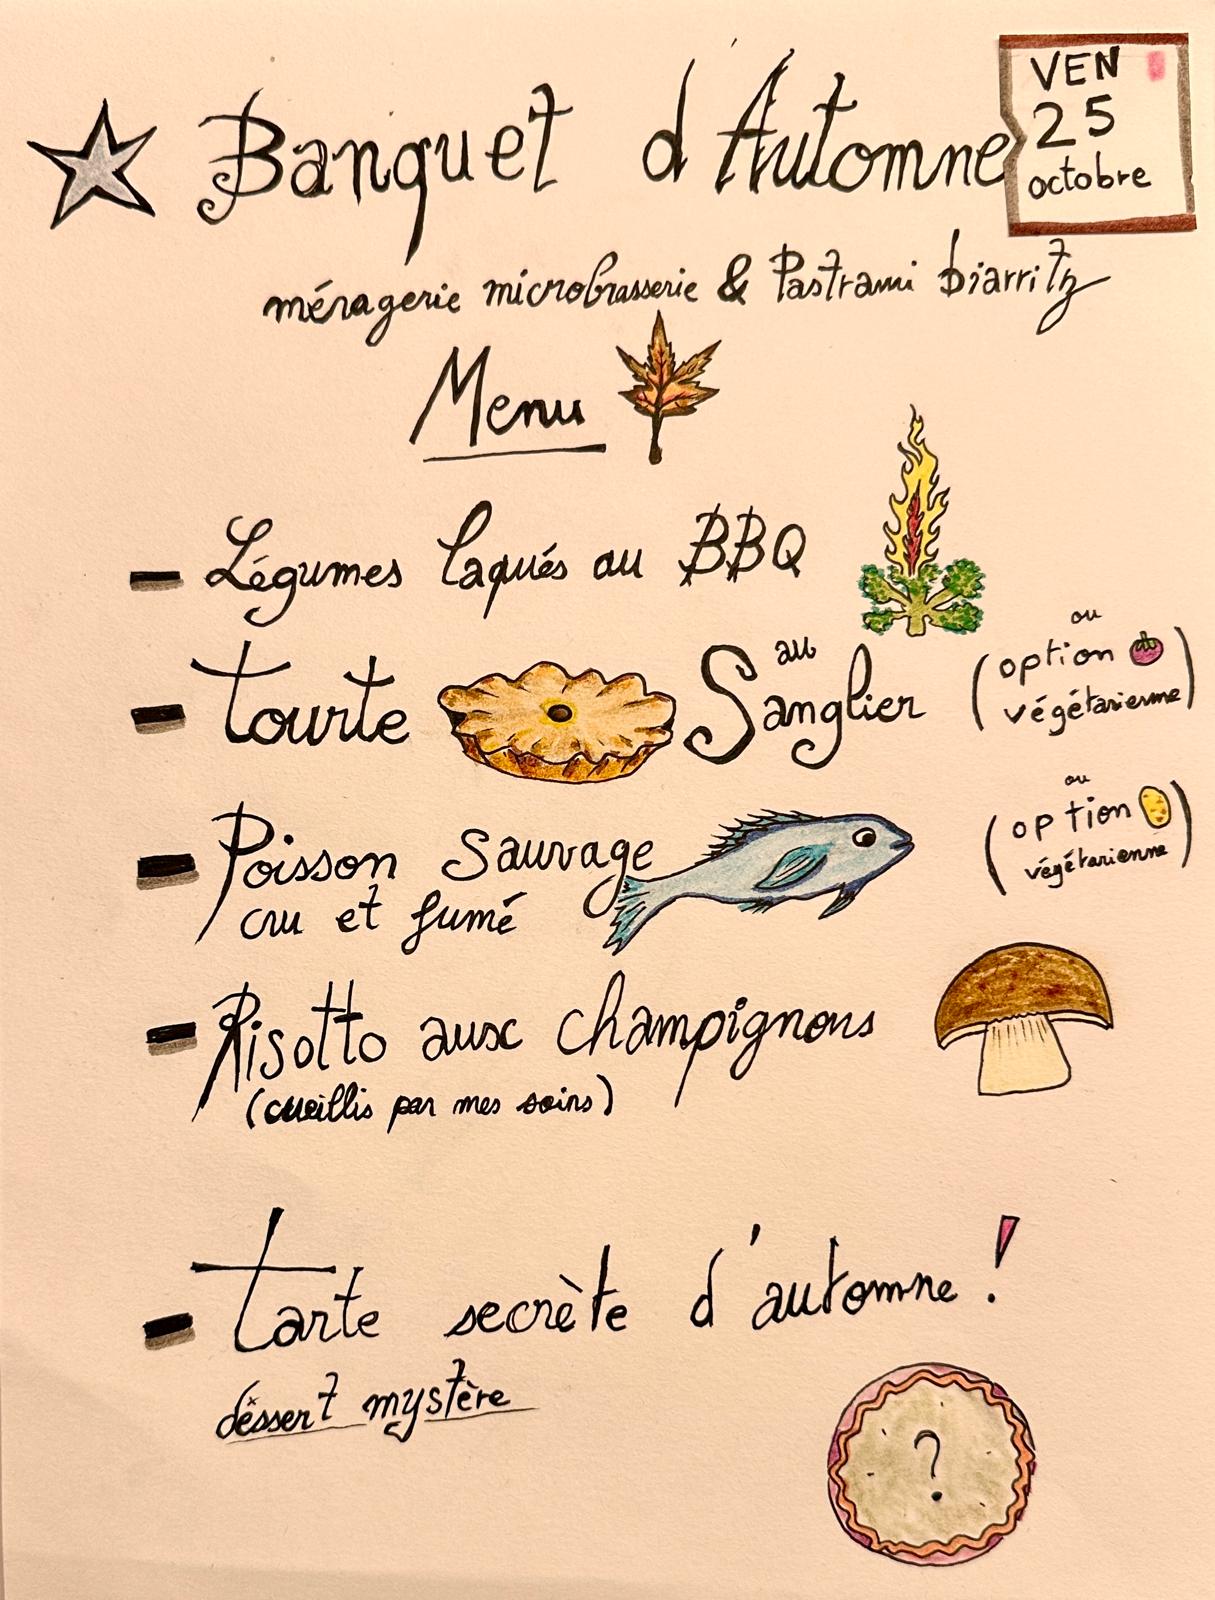 Banquet d'Automne
VEN
25
octobre
ménagerie microbrasserie & Pastrami biarritz
Menu
- Légumes laqués au BBQ
- Tourte au Sanglier
(ou option végétarienne)
- Poisson Sauvage
cru et fumé
(ou option végétarienne)
- Risotto aux champignons
(cueillis par mes soins)
- Tarte secrète d'automne !
dessert mystère
?